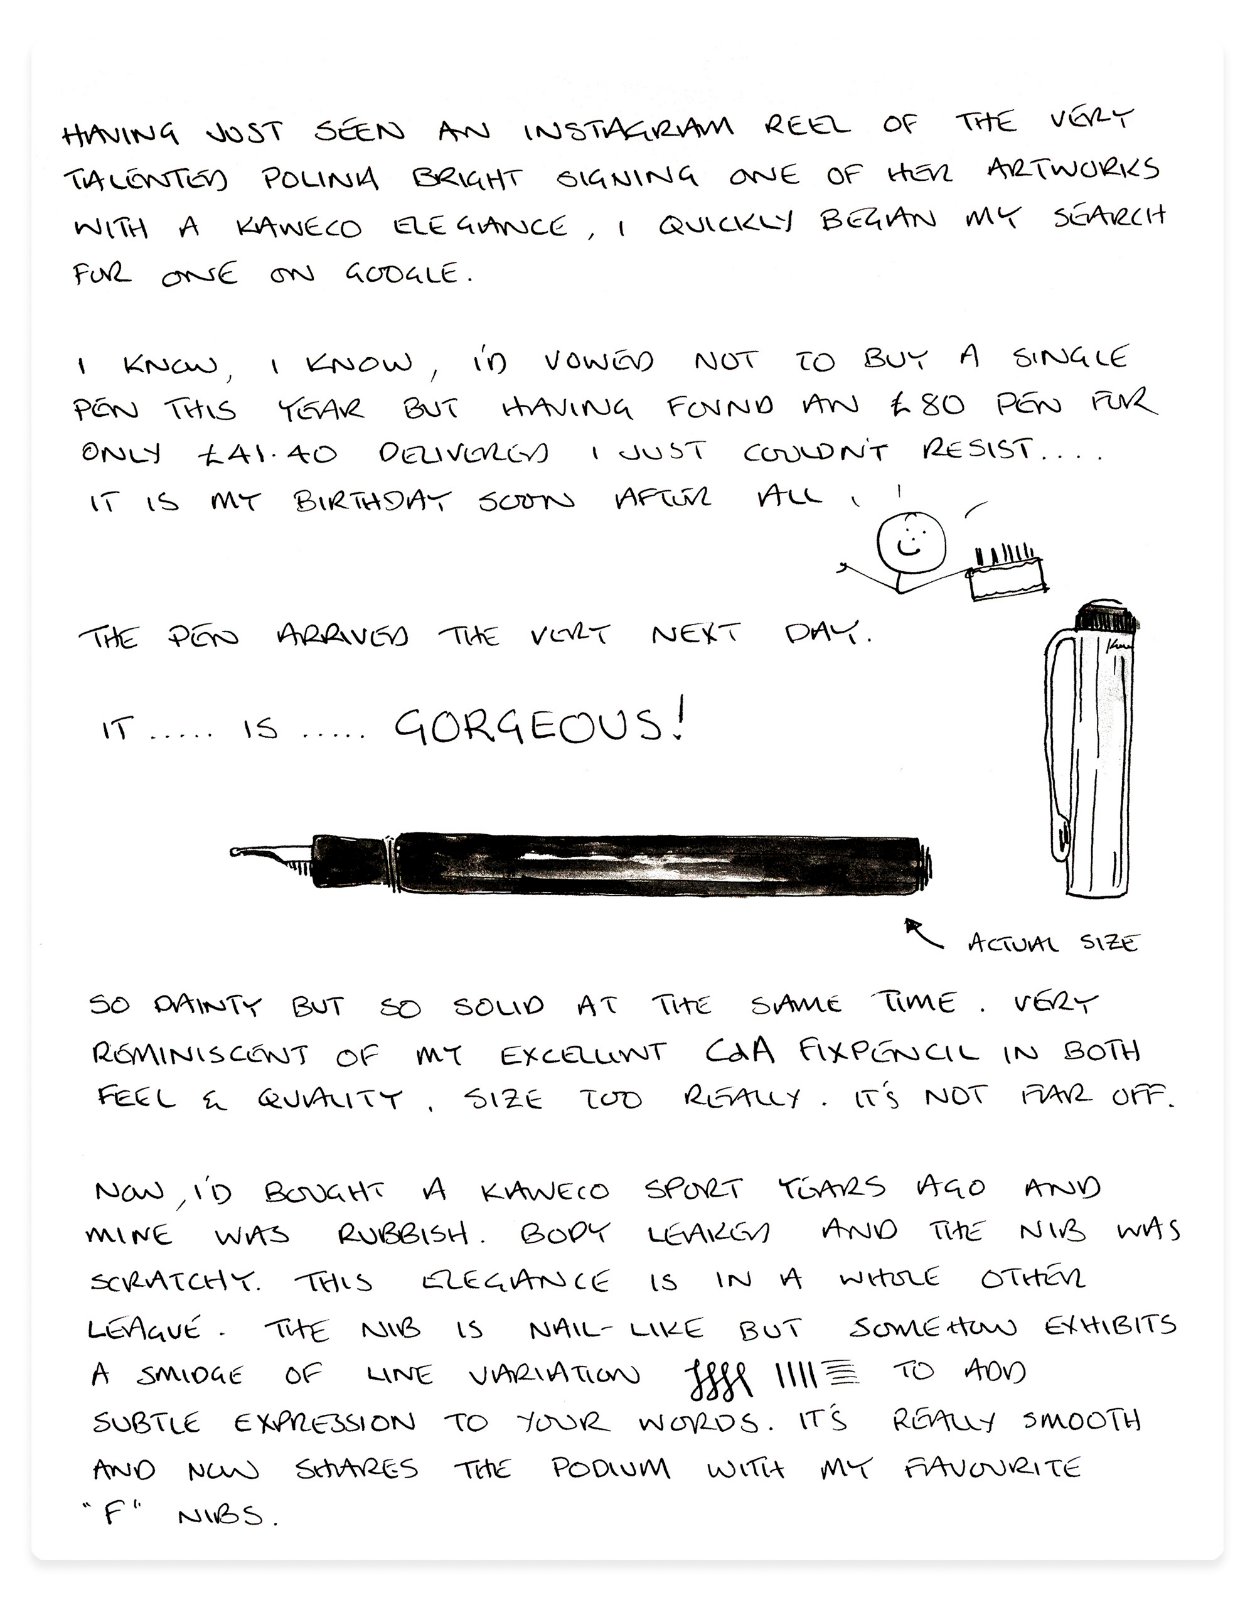 HAVING JUST SEEN AN INSTAGRAM REEL OF THE VERY
TALENTED POLINA BRIGHT SIGNING ONE OF HER ARTWORKS
WITH A KAWECO ELEGANCE, I QUICKLY BEGAN MY SEARCH
FOR ONE ON GOOGLE.
I KNOW, I KNOW, I'D VOWED NOT TO BUY A SINGLE
PEN THIS YEAR BUT HAVING FOUND AN £80 PEN FOR
ONLY £41.40 DELIVERED I JUST COULDN'T RESIST....
IT IS MY BIRTHDAY SOON AFTER ALL
THE PEN ARRIVED THE VERY NEXT DAY.
IT ..... IS ..... GORGEOUS!
ACTUAL SIZE
SO DAINTY BUT SO SOLID AT THE SAME TIME. VERY
REMINISCENT OF MY EXCELLENT CdA FIXPENCIL IN BOTH
FEEL & QUALITY. SIZE TOO REALLY. IT'S NOT FAR OFF.
NOW, I'D BOUGHT A KAWECO SPORT YEARS AGO AND
MINE WAS RUBBISH. BODY LEAKED AND THE NIB WAS
SCRATCHY. THIS ELEGANCE IS IN A WHOLE OTHER
LEAGUE. THE NIB IS NAIL-LIKE BUT SOMEHOW EXHIBITS
A SMIDGE OF LINE VARIATION TO ADD
SUBTLE EXPRESSION TO YOUR WORDS. IT'S REALLY SMOOTH
AND NOW SHARES THE PODIUM WITH MY FAVOURITE
"F" NIBS.